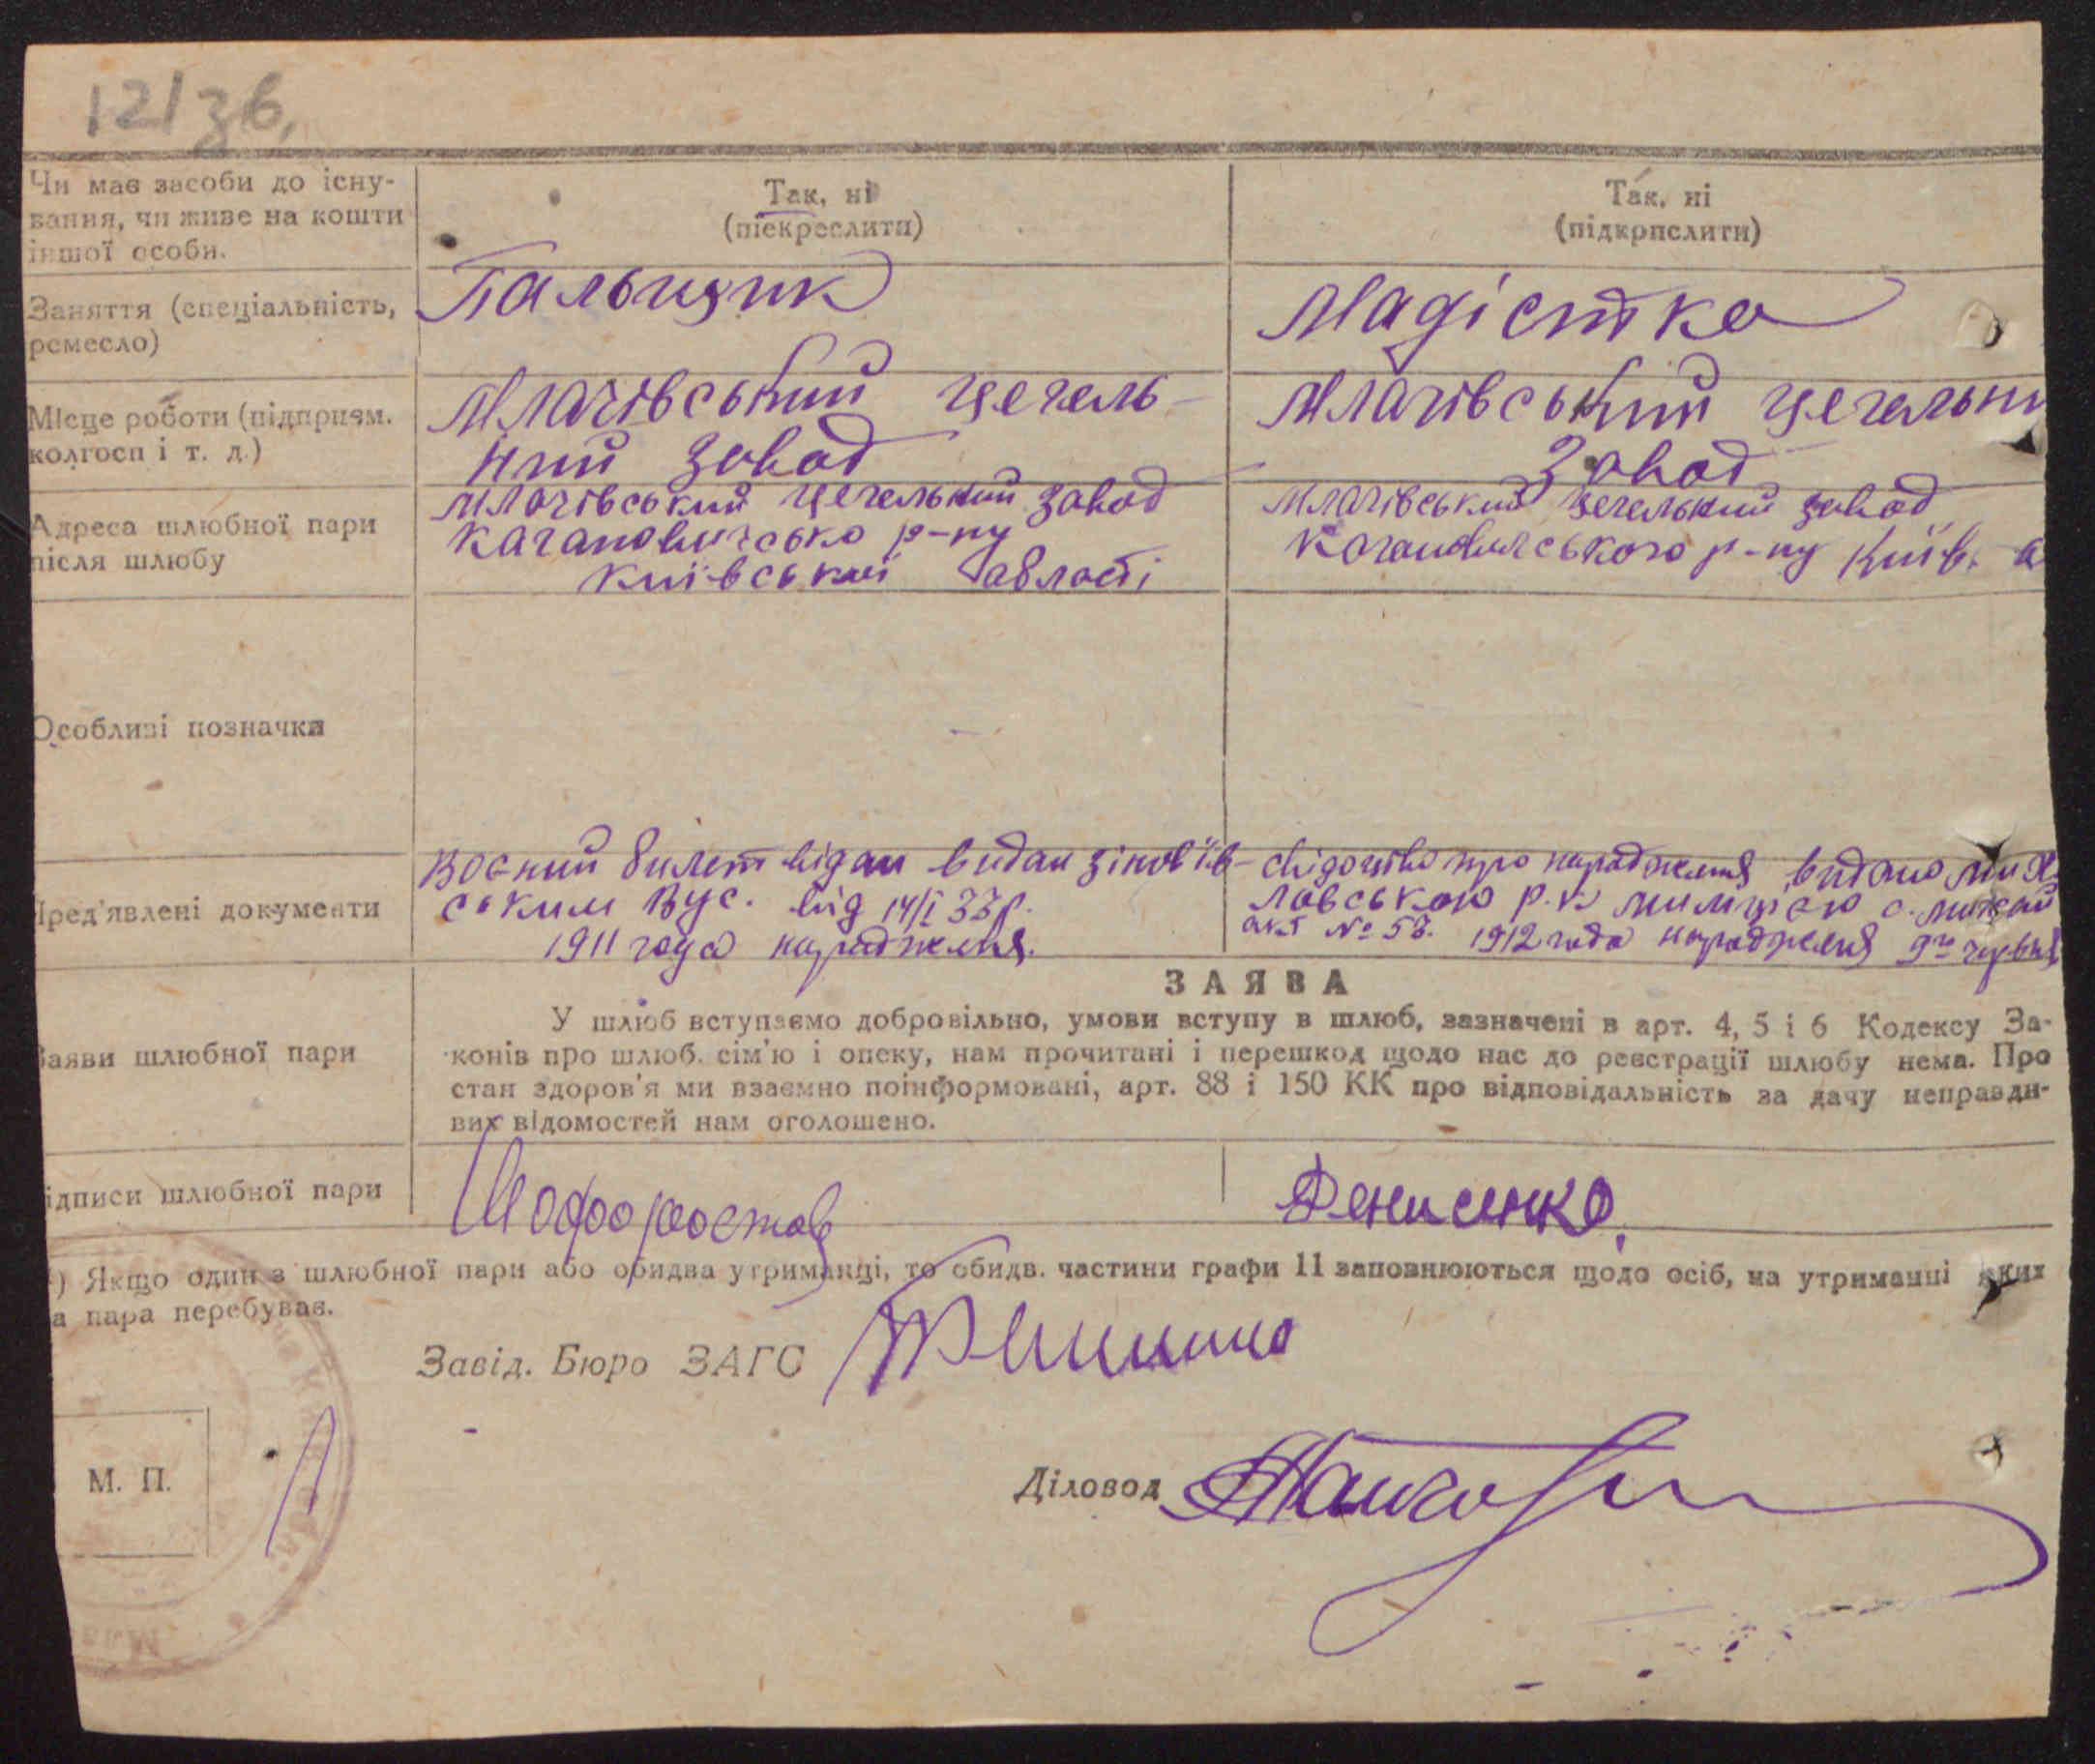 12/36,
Чи має засоби до існу-
вання, чи живе на кошти
іншої особи.
Так, ні
(піекреслити)
Так, ні
(підкрпслити)
Заняття (спеціальність,
ремесло)
Пальщик
Магістка
Місце роботи (підприєм.
колгосп і т. д.)
Млачівський цегель-
ний завод
Млачівський цегельни
завод
Адреса шлюбної пари
після шлюбу
Млачівський цегельний завод
Кагановичсько р-ну
київськиї області
Млачівський цегельний завод
Кагановичського р-ну Київ. о
Особливі позначки
Пред'явлені документи
Воєний билет видан зіновїїв-
ським Вус. від 14/I 33р.
1911 года народження.
свідоцтво про народження видано
ловською р.к милицією с.
акт № 58. 1912 года народження 9го червня
ЗАЯВА
Заяви шлюбної пари
У шлюб вступаємо добровільно, умови вступу в шлюб, зазначені в арт. 4, 5 і 6 Кодексу За-
конів про шлюб. сім'ю і опеку, нам прочитані і перешкод щодо нас до реєстрації шлюбу нема. Про
стан здоров'я ми взаємно поінформовані, арт. 88 і 150 КК про відповідальність за дачу неправди-
вих відомостей нам оголошено.
ідписи шлюбної пари
Денисенко
) Якщо один з шлюбної пари або обидва утриманці, то обидв. частини графи 11 заповнюються щодо осіб, на утриманні яких
а пара перебуває.
Завід. Бюро ЗАГС
М. П.
Діловод